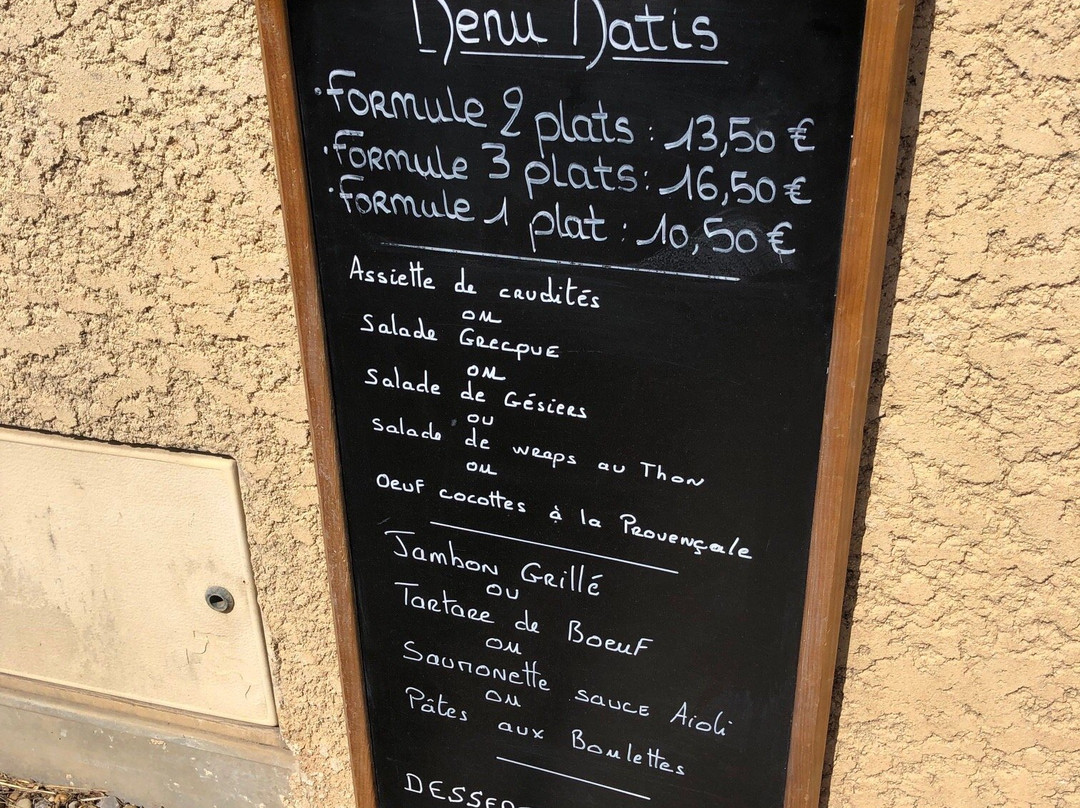 Menu Matis
• Formule 2 plats : 13,50 €
• Formule 3 plats : 16,50 €
• Formule 1 plat : 10,50 €
Assiette de crudités
ou
Salade Grecque
ou
Salade de Gésiers
ou
Salade de wraps au Thon
ou
Oeuf cocottes à la Provençale
Jambon Grillé
ou
Tartare de Boeuf
ou
Saumonette sauce Aioli
ou
Pâtes aux Boulettes